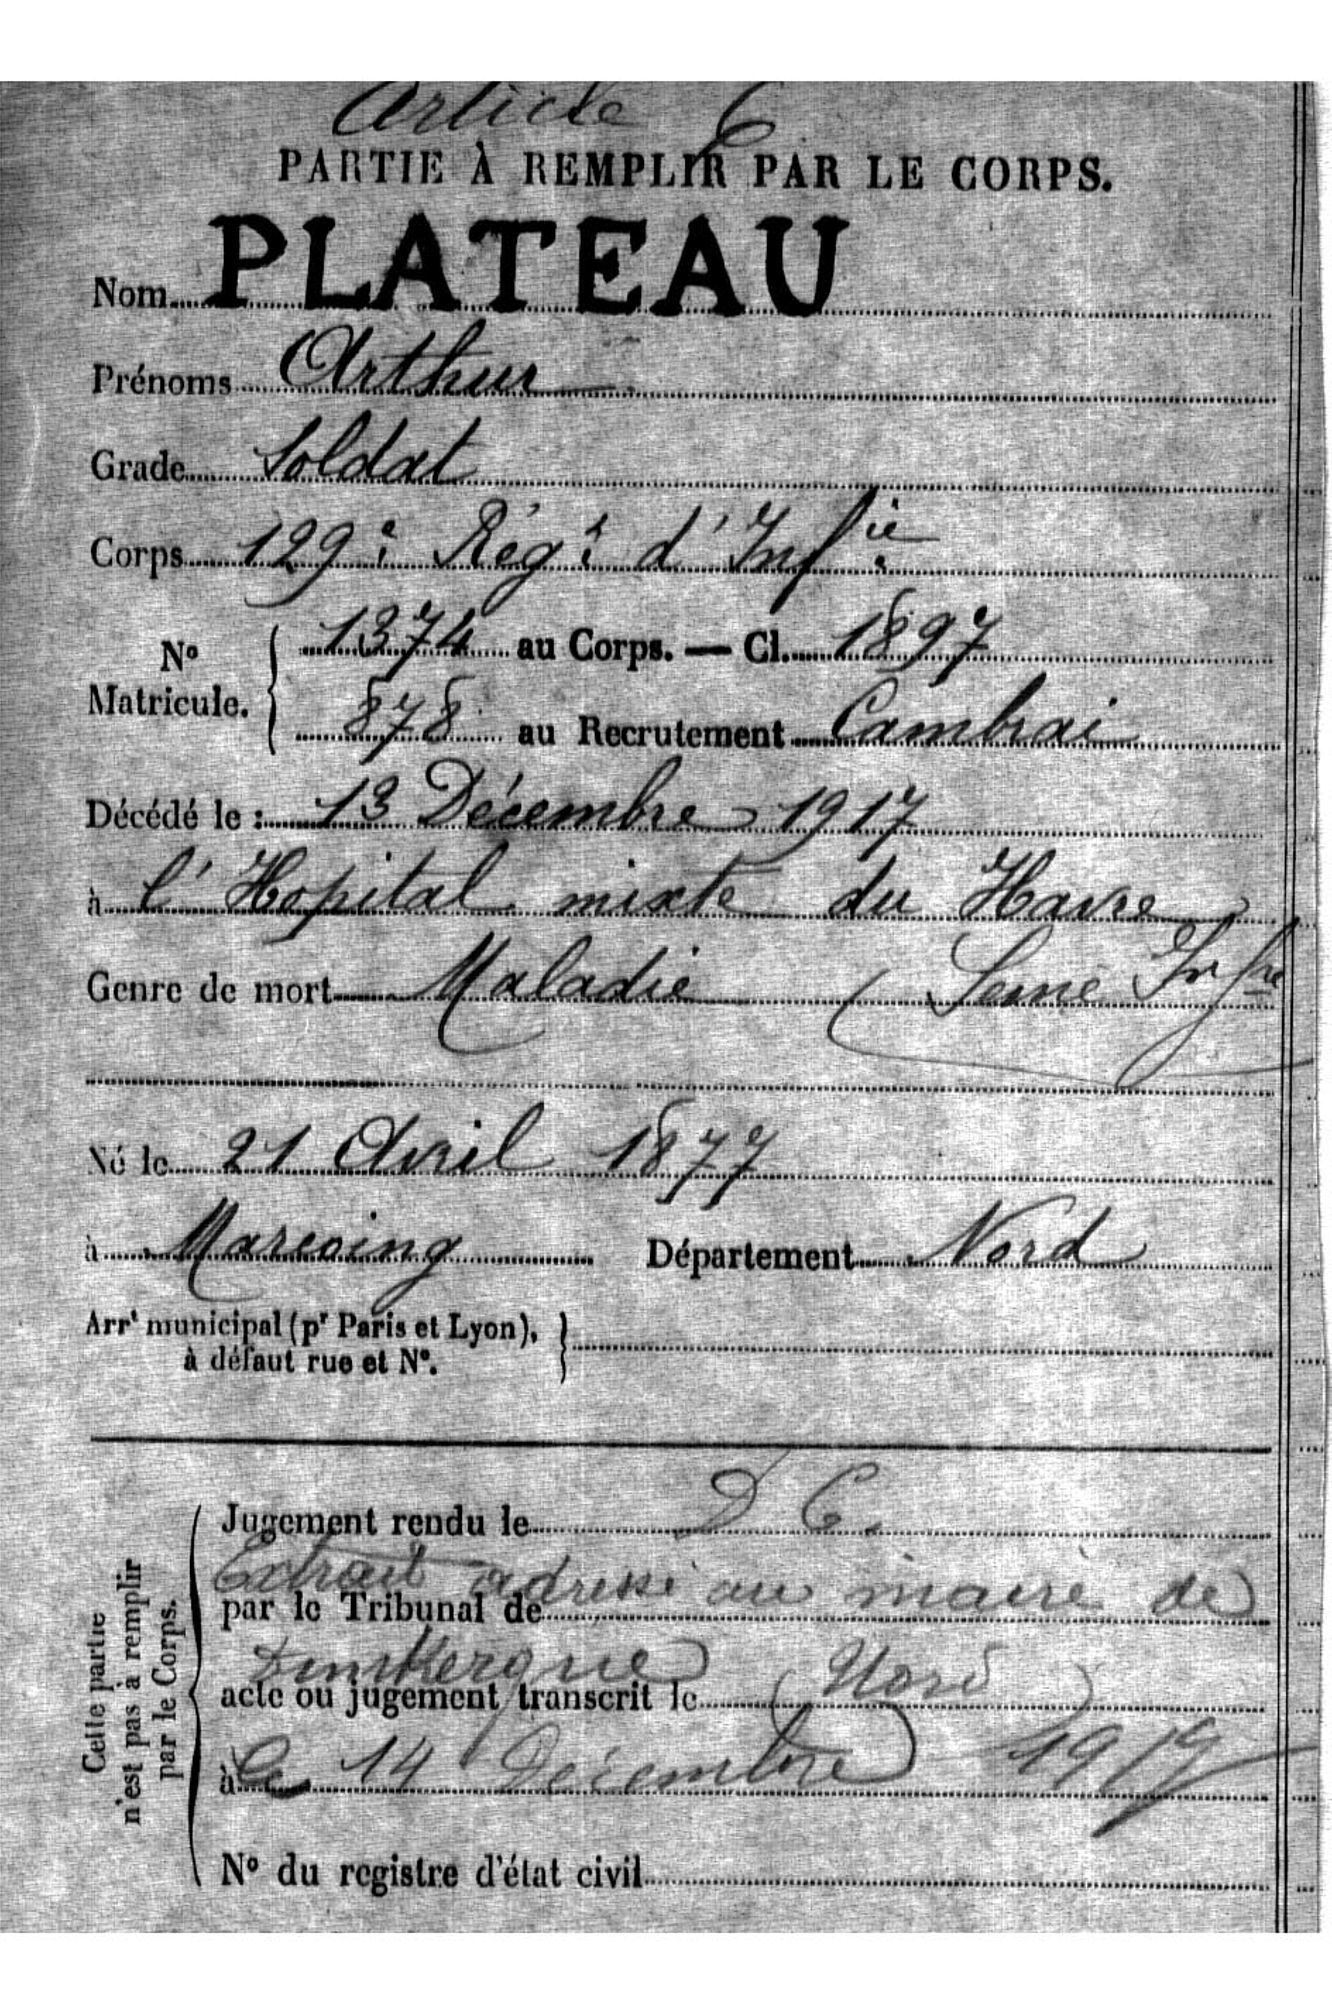 Article 6
PARTIE À REMPLIR PAR LE CORPS.
Nom PLATEAU
Prénoms Arthur
Grade Soldat
Corps 129e Régt d'Infie
No Matricule. 1374 au Corps. — Cl. 1897
878 au Recrutement Cambrai
Décédé le : 13 Décembre 1917
à l'Hopital mixte du Havre
Genre de mort Maladie (Seine Infre
Né le 21 Avril 1877
à Marcoing Département Nord
Arrt municipal (pr Paris et Lyon),
à défaut rue et No.
Cette partie
n'est pas à remplir
par le Corps.
Jugement rendu le D C.
Extrait adressé au maire de
par le Tribunal de
Dunkerque (Nord)
acte ou jugement transcrit le
à le 14 Décembre 1919
No du registre d'état civil